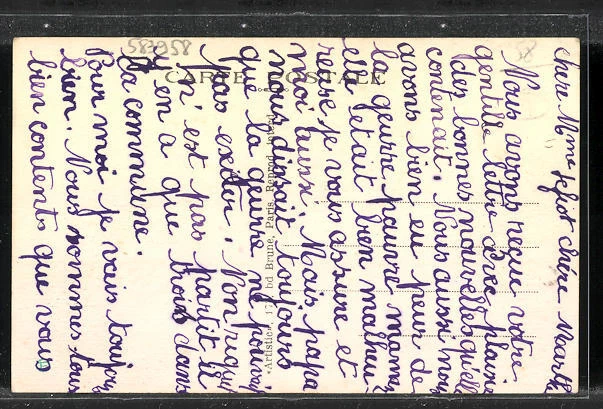 Chère Mme Jefort Chère Marth
Nous avons reçu votre
gentille lettre avec plaisir
des bonnes nouvelles qu'elle
contenait. Nous aussi nous
avons bien eu peur de
la guerre pauvre maman
elle était bien malheu-
reuse je vous assure et
moi aussi. Mais papa
nous disait toujours
que la guerre ne pouvait
pas exister. Non
n'est pas partit il
y en a que trois dans
la commune.
Pour moi je vais toujours
bien. Nous sommes tous
bien contents que vous
583958
58
CARTE POSTALE
«Artistic», 17, bd Brune, Paris. Reprod. interd.